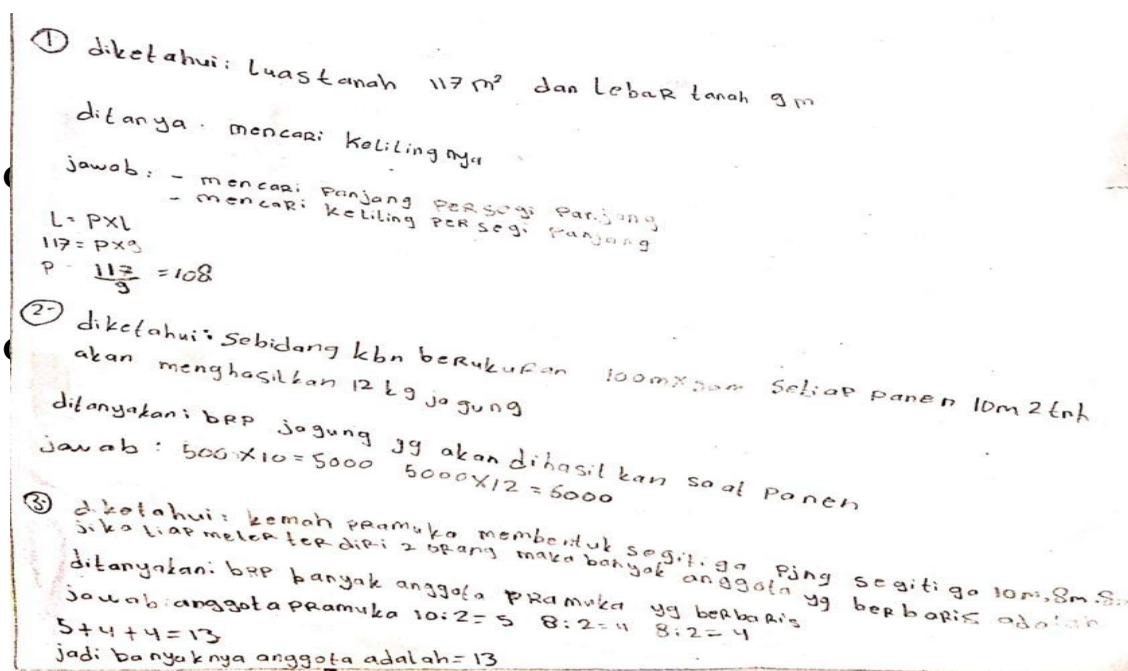 ① diketahui: Luas tanah 117 m² dan Lebar tanah 9 m
ditanya. mencari kelilingnya
jawab: - mencari panjang persegi panjang
- mencari keliling persegi panjang
L = P×L
117 = P×9
P = 117/9 = 108
② diketahui: sebidang kbn berukuran 100m× setiap panen 10m 2 tnh
akan menghasilkan 12 kg jagung
ditanyakan: brp jagung yg akan dihasilkan saat panen
jawab: 500×10 = 5000 5000×12 = 6000
③ diketahui: kemah pramuka membentuk segitiga pjng segitiga 10m, 8m, 8
jika tiap meter terdiri 2 orang maka banyak anggota yg berbaris adalah
ditanyakan: brp banyak anggota pramuka yg berbaris
jawab: anggota pramuka 10:2 = 5 8:2 = 4 8:2 = 4
5+4+4 = 13
jadi banyaknya anggota adalah = 13